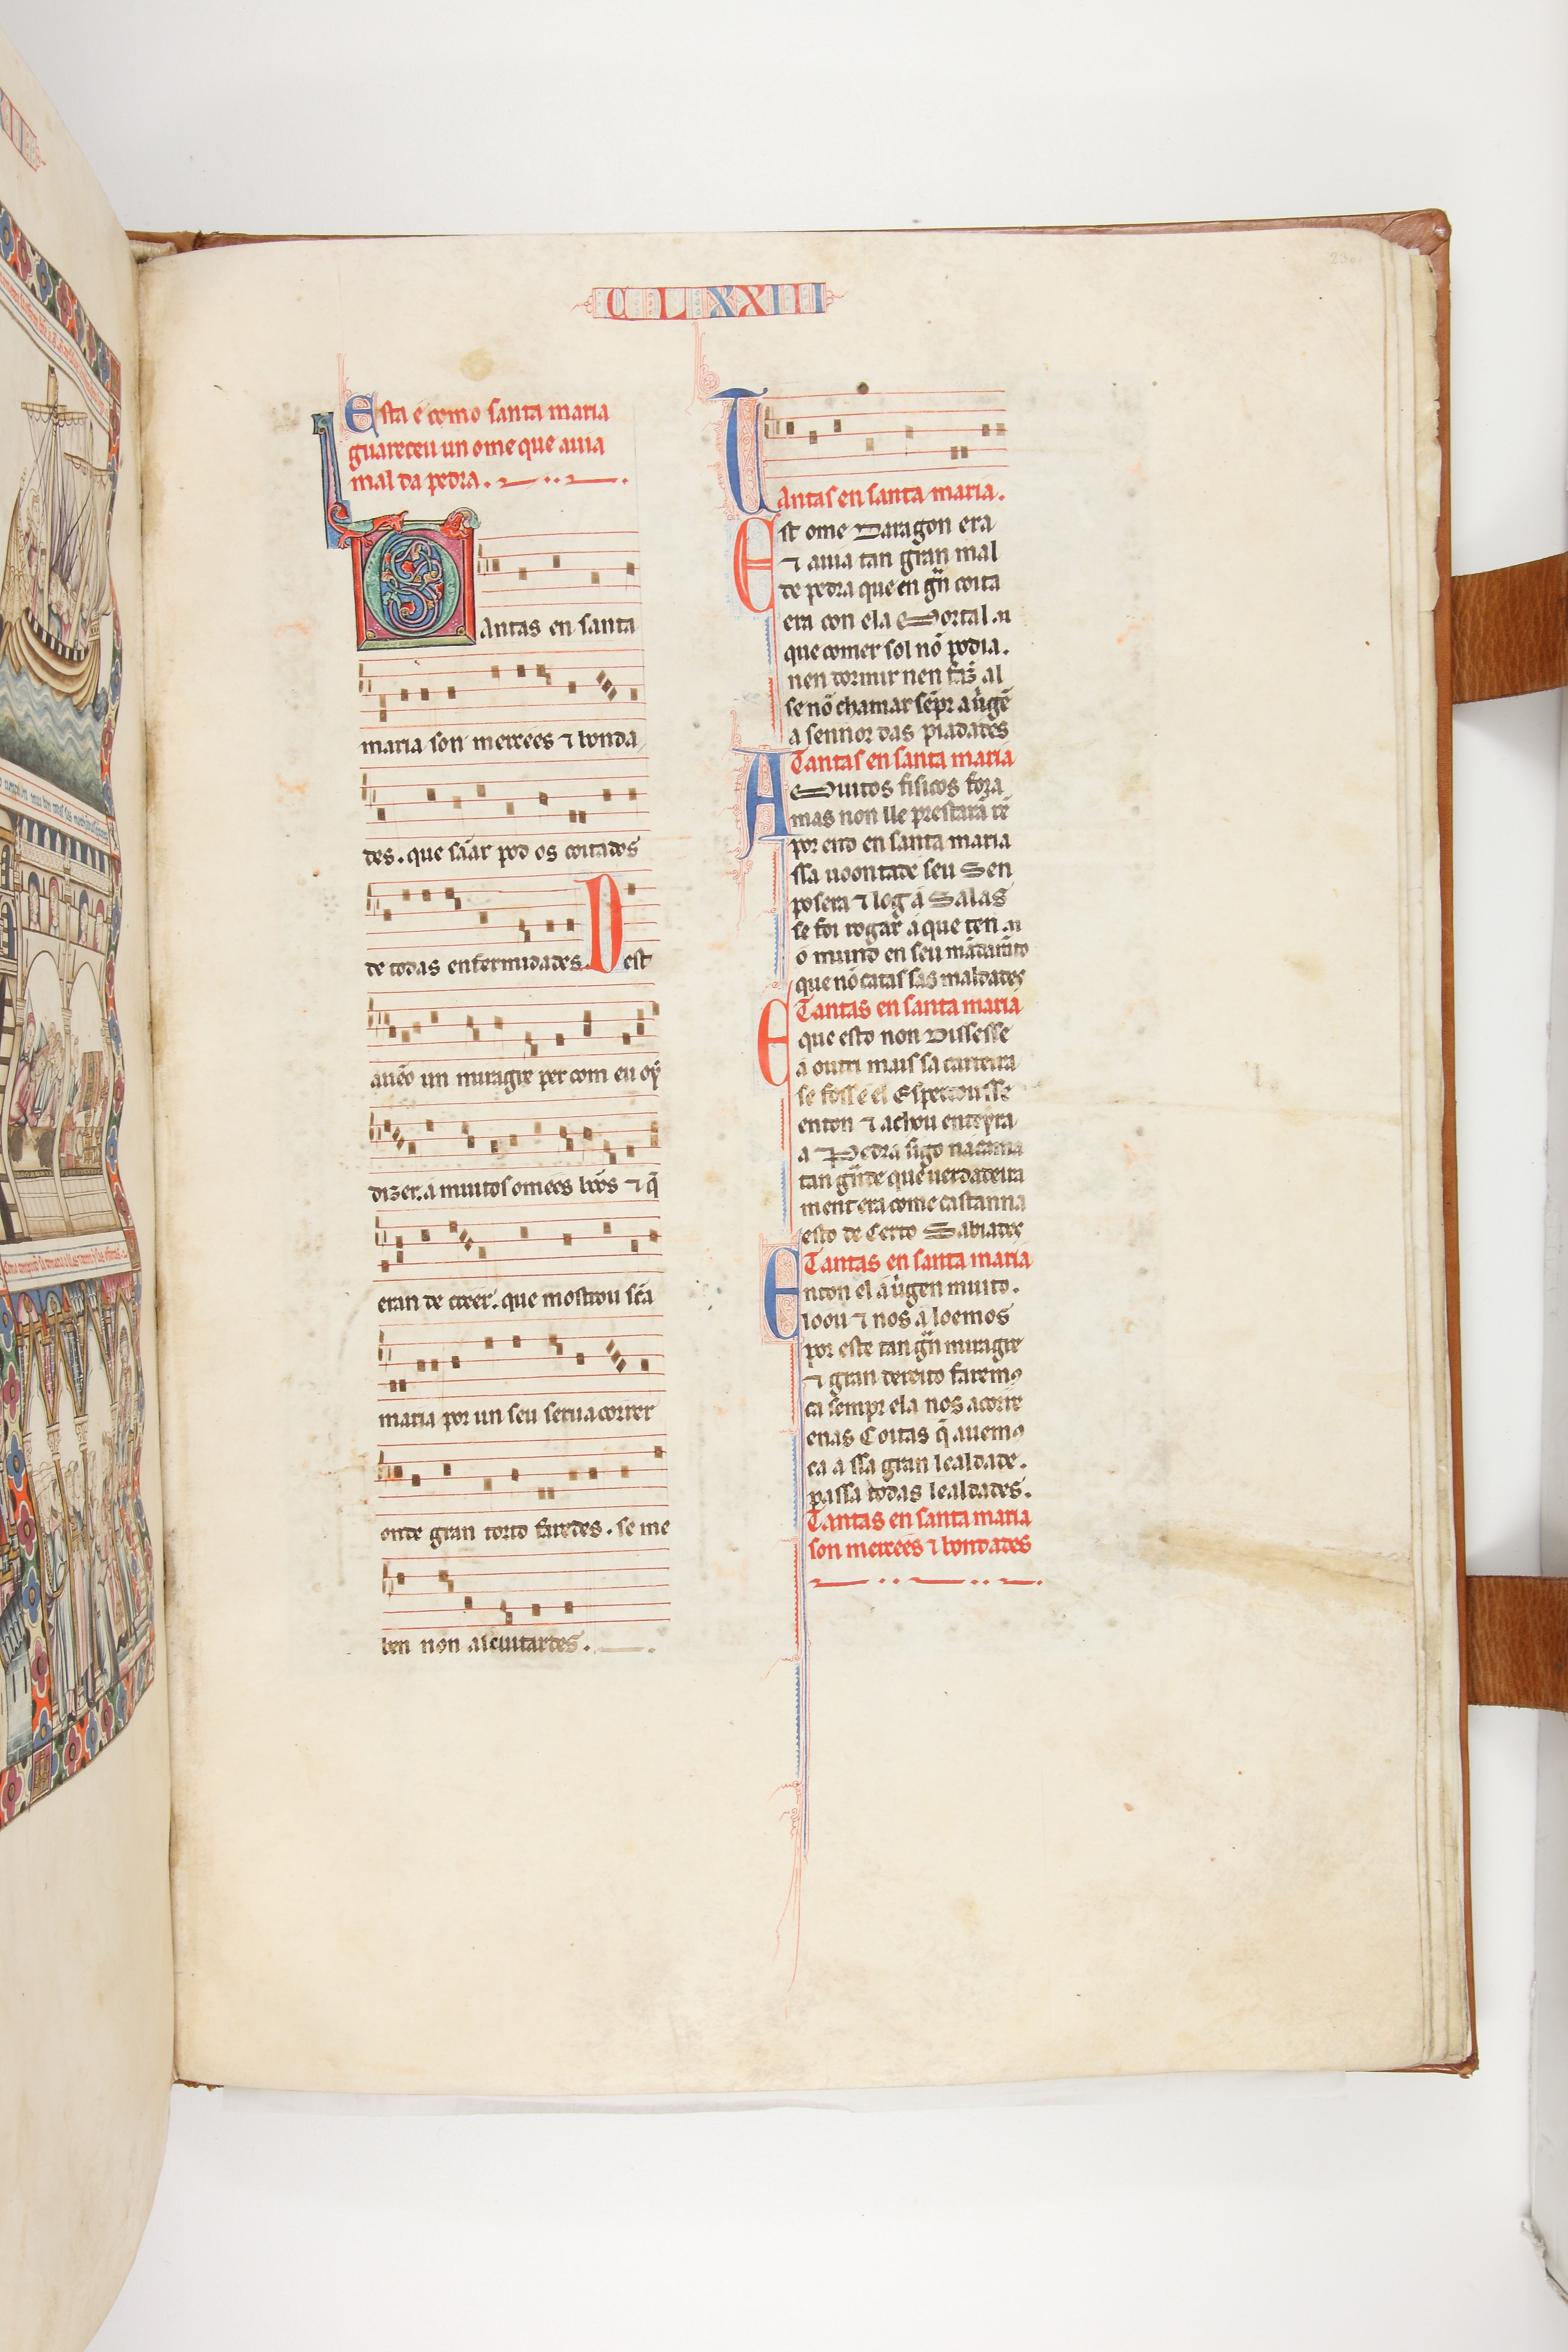 CLXXIII
Esta é como santa maria
guareceu un ome que auia
mal da pedra.
Tantas en santa
maria son mercees ⁊ bonda
des. que sãar pod os coitados
de todas enfermidades. Dest
auẽo un miragre per com eu oý
dizer. a muitos omees bõos ⁊ q̃
eran de creer. que mostrou sc̃a
maria por un seu seru acorrer
onde gran torto faredes. se me
ben non ascuitardes.
Tantas en santa maria.
Est ome Daragon era
⁊ auia tan gran mal
de pedra que en gñ coita
era con ela Mortal. ⁊
que comer sol nõ podia.
nen dormir nen faz̃ al
se nõ chamar sẽpr a uı̃gẽ
a sennor das piadades
Tantas en santa maria
A Muitos fisicos fora
mas non lle prestarã rẽ
por end en santa maria
ssa uoontade seu Sen
posera ⁊ log a Salas
se foi rogar a que ten.
o mund en seu mãdamẽto
que nõ catas sas maldades
Tantas en santa maria
E que esto non Dissesse
a outri mais sa carreira
se fosse el Espertousse
enton ⁊ achou enteyra
a Pedra sigo na cama
tan gñde que uerdadeira
ment era come castanna
esto de Certo Sabiades
Tantas en santa maria
Enton el a uı̃gen muito.
loou ⁊ nos a loemos
por este tan gñ miragre
⁊ gran dereito faremꝯ
ca sempr ela nos acorre
enas Coitas q̃ auemꝯ
ca a ssa gran lealdade.
passa todas lealdades.
Tantas en santa maria
son mercees ⁊ bondades